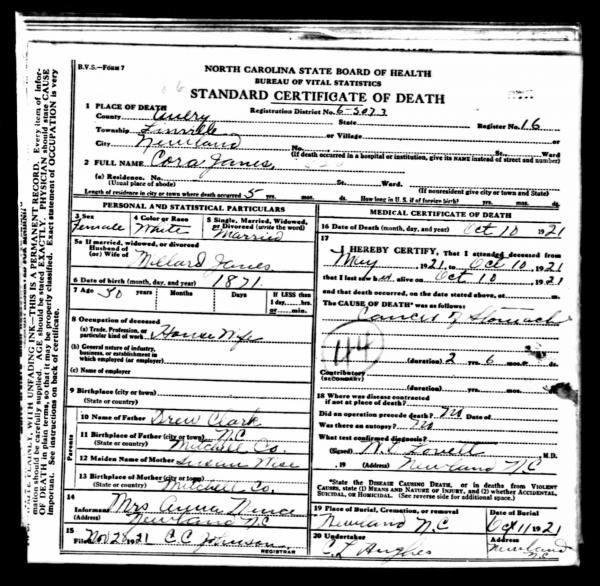 B.V.S.—FORM 7
NORTH CAROLINA STATE BOARD OF HEALTH
BUREAU OF VITAL STATISTICS
STANDARD CERTIFICATE OF DEATH
1 PLACE OF DEATH Registration District No. 6-5073 Register No. 16
County Avery State
Township Linville or Village
City Newland No. St. Ward
(If death occurred in a hospital or institution, give its NAME instead of street and number)
2 FULL NAME Cora Janes
(a) Residence. No. St. Ward.
(Usual place of abode) (If nonresident give city or town and State)
Length of residence in city or town where death occurred 5 yrs. mos. ds. How long in U. S. if of foreign birth? yrs. mos. ds.
PERSONAL AND STATISTICAL PARTICULARS
3 Sex Female
4 Color or Race White
5 Single, Married, Widowed, or Divorced (write the word) Married
5a If married, widowed, or divorced
Husband of
(or) Wife of Millard Janes
6 Date of birth (month, day, and year) 1871
7 Age 50 years Months Days If LESS than
1 day, hrs.
or min.
8 Occupation of deceased
(a) Trade, Profession, or
particular kind of work House Wife
(b) General nature of industry,
business, or establishment in
which employed (or employer)
(c) Name of employer
9 Birthplace (city or town)
(State or country)
Parents
10 Name of Father Drew Clark
11 Birthplace of Father (city or town) N.C
(State or country) Mitchell Co.
12 Maiden Name of Mother Susan Wise
13 Birthplace of Mother (city or town)
(State or country) Mitchell Co.
14
Informant Mrs Annie
(Address) Newland NC
15
Filed Nov 28 1921 C.C. Johnson
REGISTRAR
MEDICAL CERTIFICATE OF DEATH
16 Date of Death (month, day, and year) Oct 10 1921
17
I HEREBY CERTIFY, That I attended deceased from
May 1921, to Oct 10, 1921
that I last saw her alive on Oct 10, 1921
and that death occurred, on the date stated above, at m.
The CAUSE OF DEATH* was as follows:
Cancer of Stomach
44
(duration) 2 yrs. 6 mos. ds.
Contributory
(SECONDARY)
(duration) yrs. mos. ds.
18 Where was disease contracted
if not at place of death?
Did an operation precede death? No Date of
Was there an autopsy? No
What test confirmed diagnosis?
(Signed) Lovett M.D.
, 19 (Address) Newland NC
*State the DISEASE CAUSING DEATH, or in deaths from VIOLENT
CAUSES, state (1) MEANS AND NATURE OF INJURY, and (2) whether ACCIDENTAL,
SUICIDAL, OR HOMICIDAL. (See reverse side for additional space.)
19 Place of Burial, Cremation, or removal Date of Burial
Newland N.C Oct 11 1921
20 Undertaker Address
C L Hughes Newland NC
WRITE PLAINLY, WITH UNFADING INK—THIS IS A PERMANENT RECORD. Every item of information should be carefully supplied. AGE should be stated EXACTLY. PHYSICIAN should state CAUSE OF DEATH in plain terms, so that it may be properly classified. Exact statement of OCCUPATION is very important. See instructions on back of certificate.